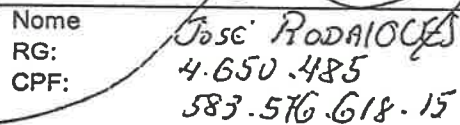 Nome José RODRIGUES
RG: 4.650.485
CPF: 583.576.618-15